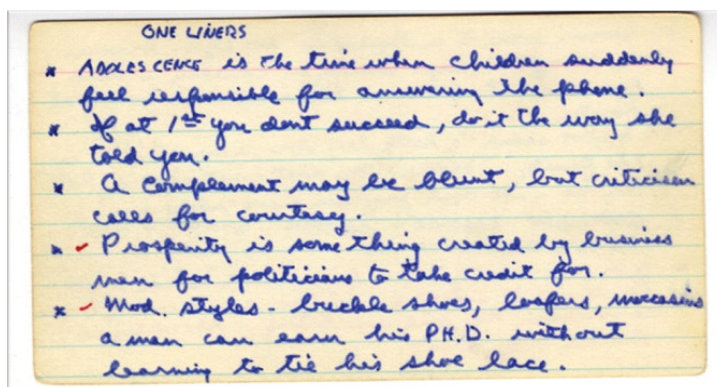 ONE LINERS
* ADOLESCENCE is the time when children suddenly
feel responsible for answering the phone.
* If at 1st you dont succeed, do it the way she
told you.
* A complement may be blunt, but criticism
calls for courtesy.
* ✓ Prosperity is something created by business
men for politicians to take credit for.
* ✓ Mod. styles - buckle shoes, loafers, moccasins
a man can earn his PH.D. without
learning to tie his shoe lace.